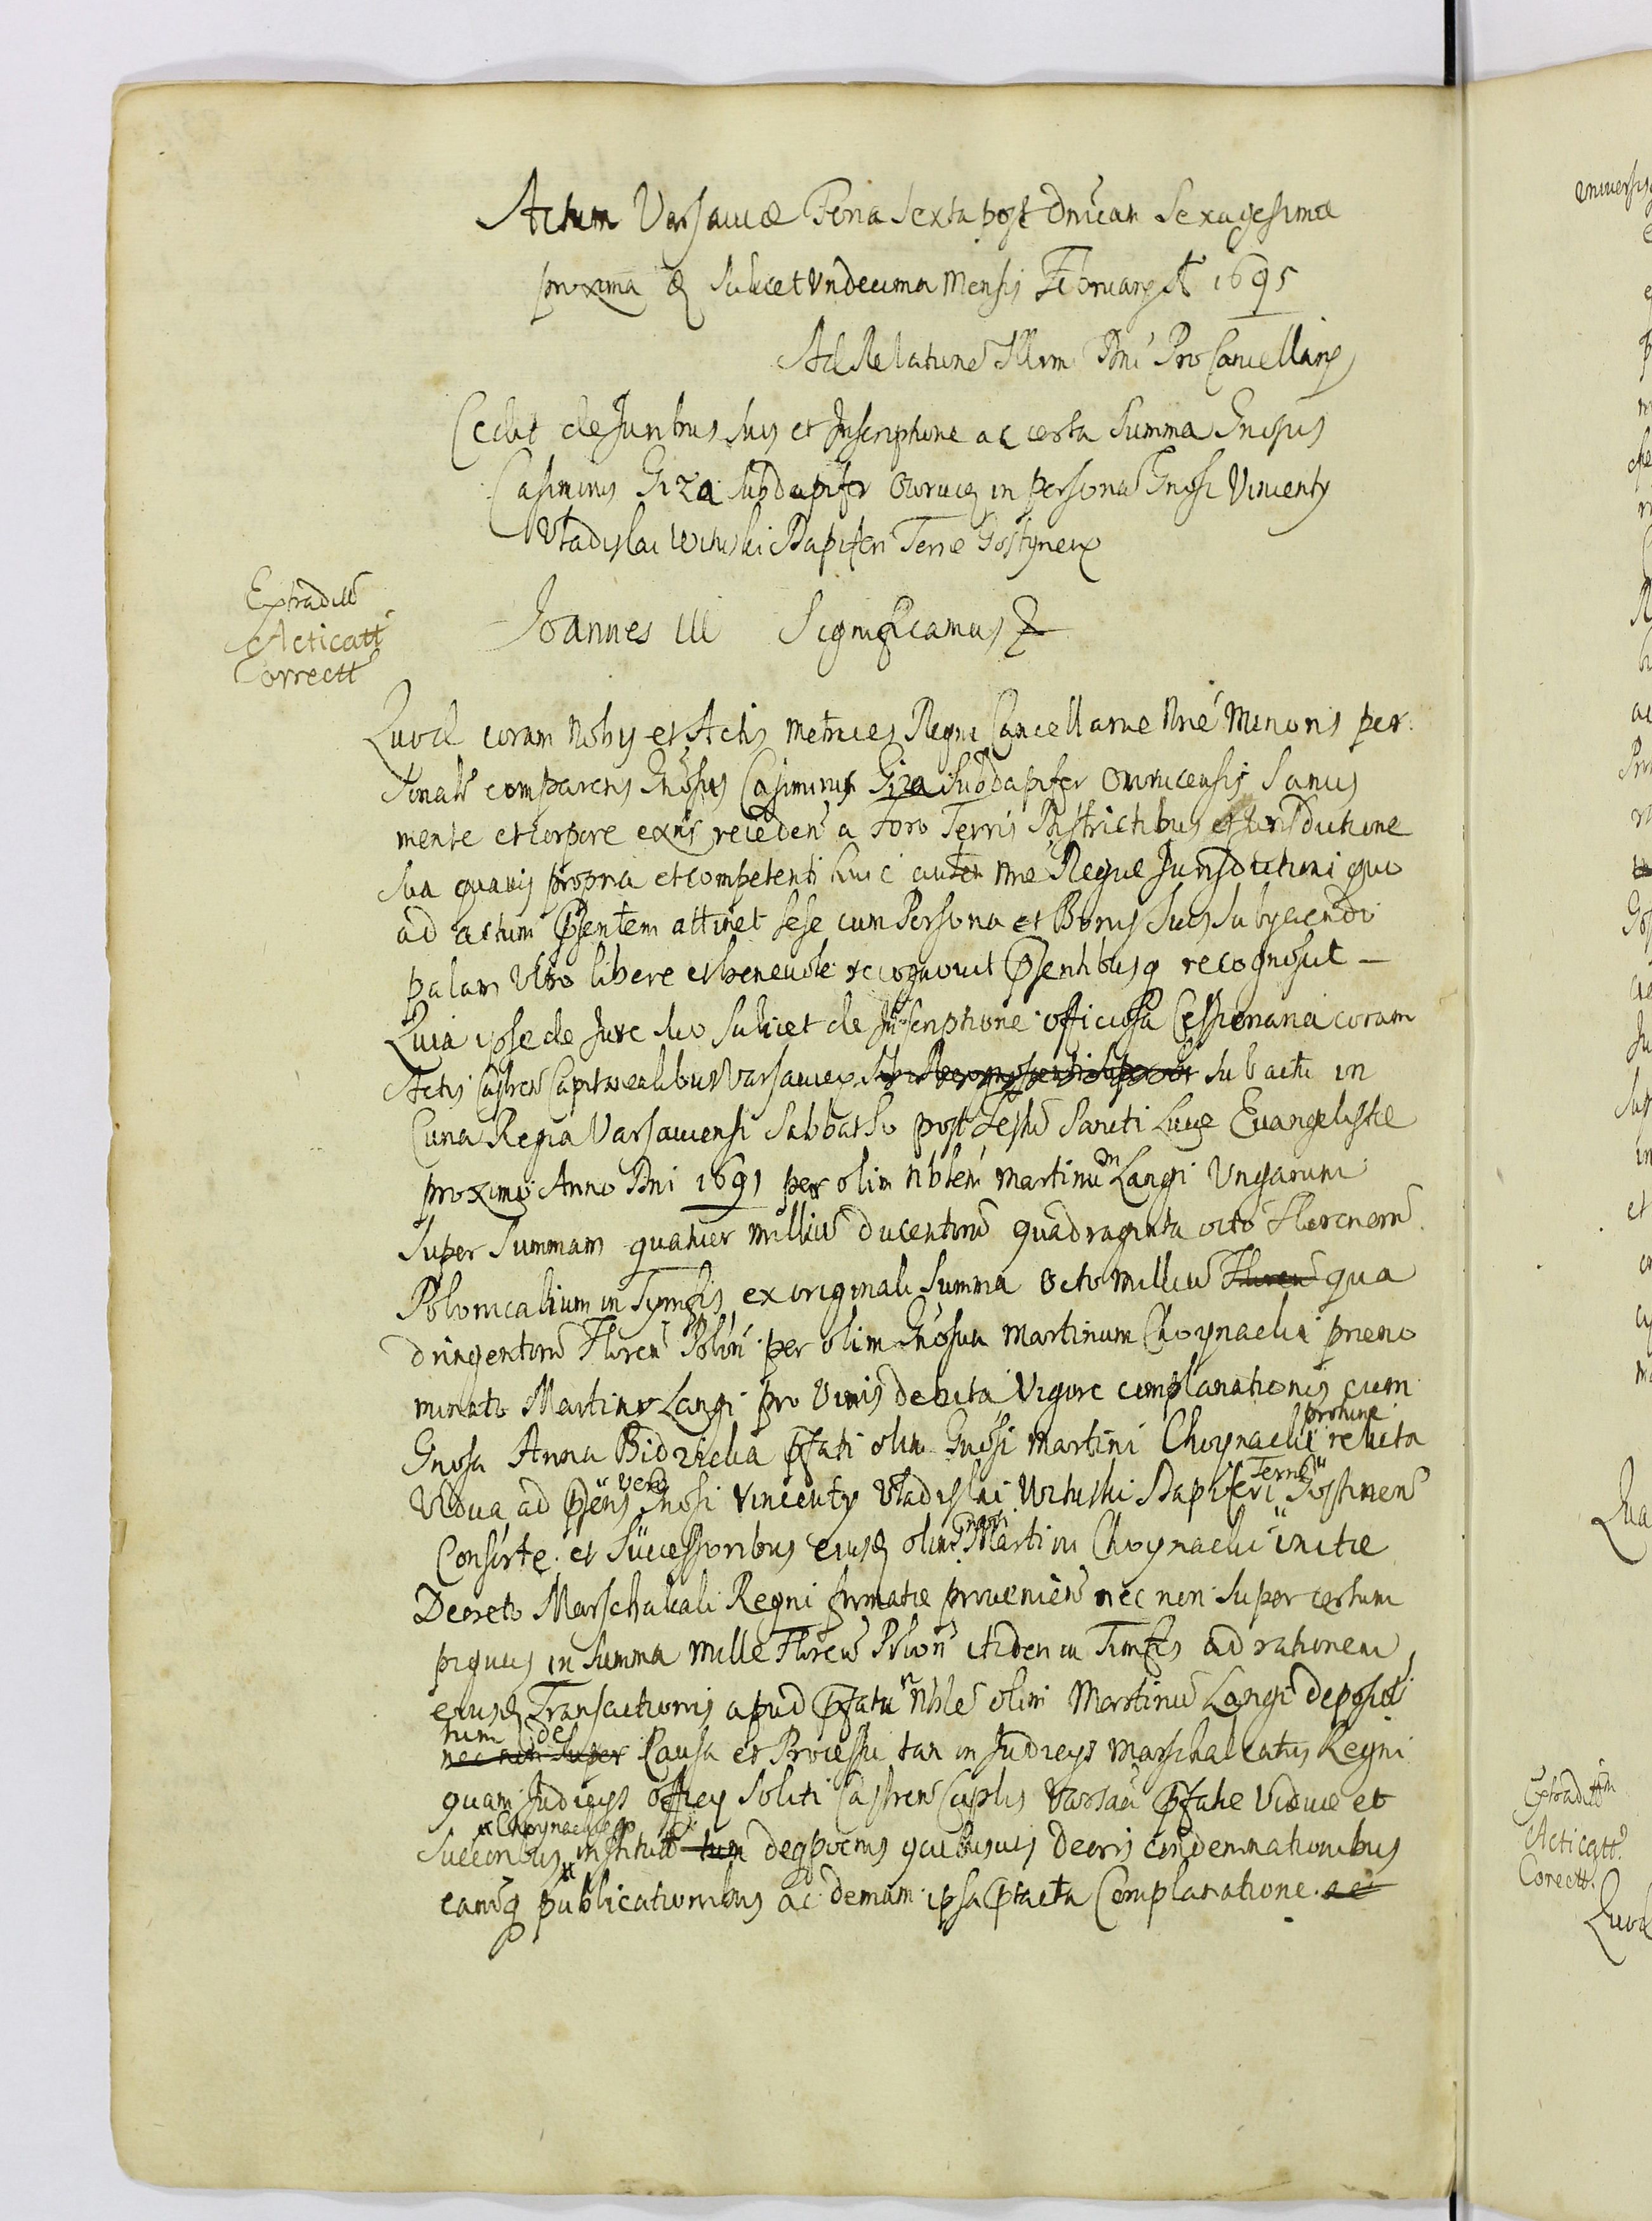 Actum Varsaviæ Feria Sexta post Dnicam Sexagesimæ
proxima Scilicet Undecima Mensis February A 1695
Ad Relatione Illrm Dni Pro Cancellary
Cedit de Juribus suis et Inscriptione ac certa Summa Gnosus
Casimirus Giza Subdapifer Owruc in persona Gnosi Vincenty
Vladislai Wituski Dapiferi Terræ Gostynen
Extraditt
Acticatt
Correctt
Joannes III Significamus
Quod coram Nobis et Actis Metrices Regni Cancellariæ Nræ Minoris per
sonalr comparens Gnosus Casimirus Giza Subdapifer Owrucensis Sanus
mente et corpore exns recedens a Foro Terris Districtibus et Jurisdictione
sua quavis propria et competenti huic autem Nræ Regiæ Jurisdictioni quo
ad actum Psentem attinet sese cum Persona et Bonis suis subyciendo
palam Ultro libere et benevole recognovit Psentibusq recognoscit –
Quia ipse de Jure suo scilicet de Inscriptione officiosa Cessionaria coram
Actis Castren Capitanealibus Varsavien sub actu in
Curia Regia Varsaviensi Sabbatho post Festu Sancti Lucæ Evangelistæ
proximo Anno Dni 1691 per olim Nblem Martinum Langi Ungarum
Super Summam quatuor milliu ducentoru quadraginta octo Florenoru
Polonicalium in Tymfis ex originali Summa Octo milliu Floren qua
dringentoru Floren Polon per olim Gnosum Martinum Choynacki præno
minato Martino Langi pro Vinis debita Vigore complanationis cum
Gnosa Anna Bidzicka Pfati olim Gnosi Martini Choynacki protunc relicta
Vidua ad Psens vero Gnosi Vincenty Vladislai Wituski Dapiferi Terræ Gostinen
Consorte et Successoribus eiusd olim Gnosi Martini Choynacki initæ
Decreto Marschalcali Regni firmatæ provenien nec non super certum
pignus in Summa mille Floren Polon itidem in Timfis ad rationem
eiusd Transactionis apud Pfatu Nble olim Martinu Langi deposit
tum de nec non super Causa et Processu tam in Judicys Marschalcatus Regni
quam Judicys officy soliti Castren Caplis Varsav Pfatæ Viduæ et
Succoribus Choynacki institutt tum deqpoenis quibusvis Decris condemnationibus
earuq publicationibus ac demum ipsa Ptacta Complanatione ac